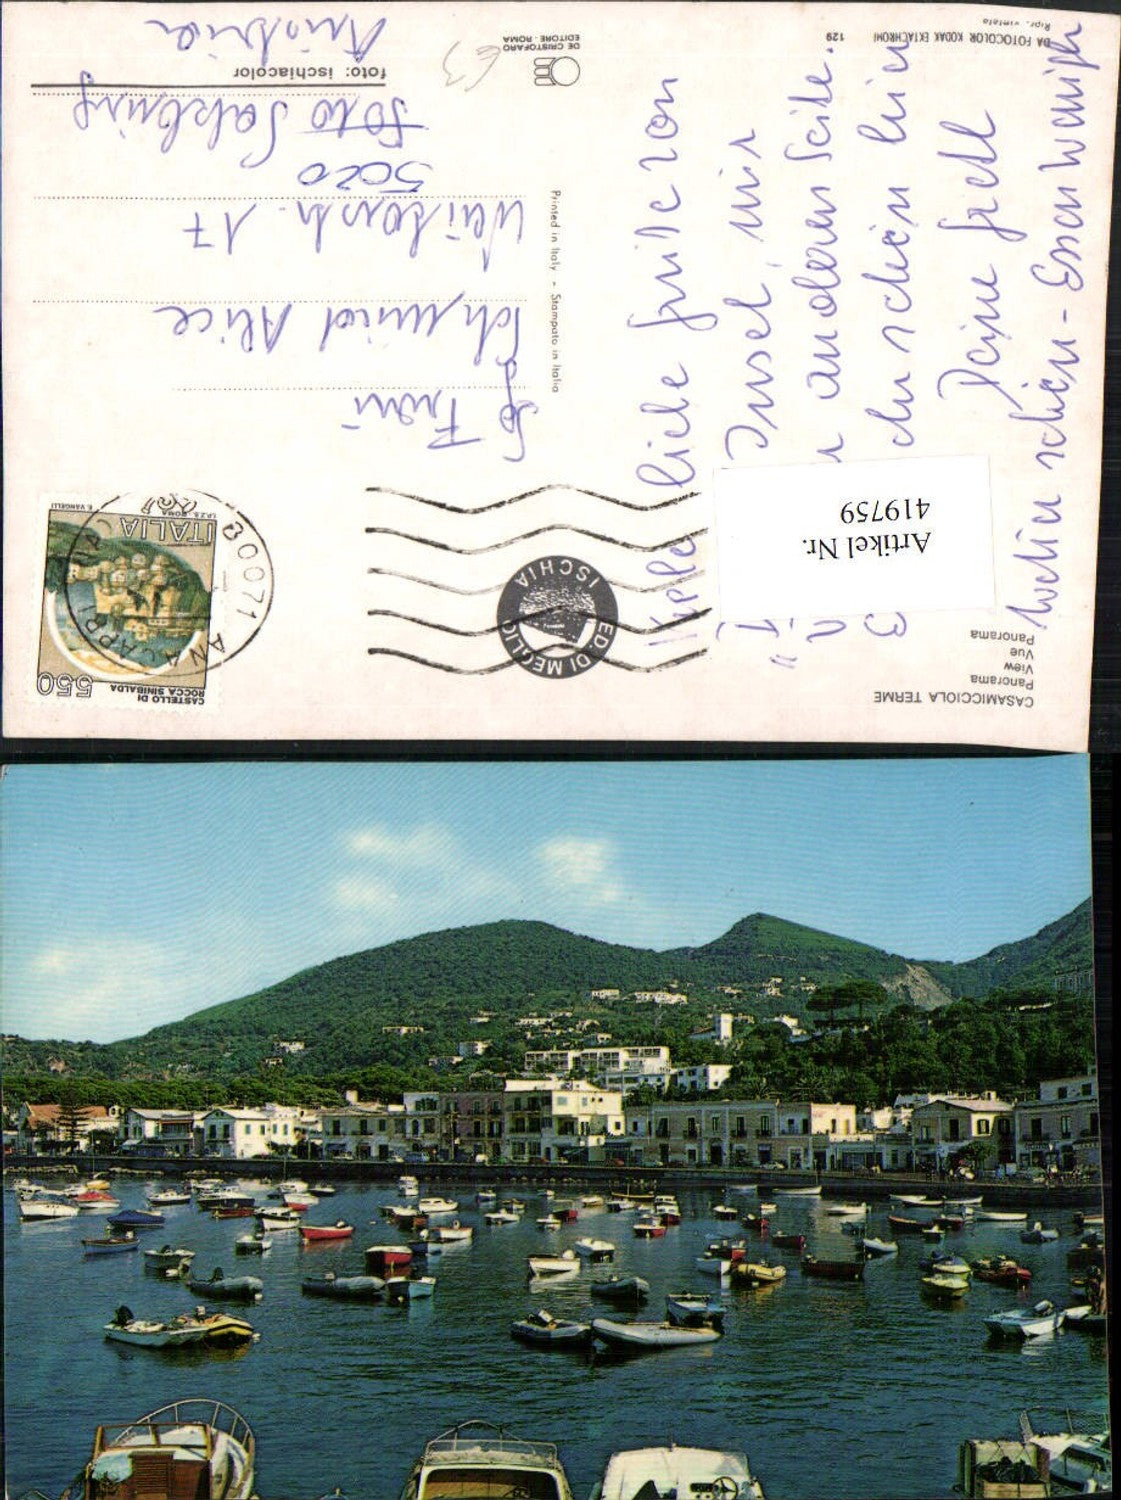 CASAMICCIOLA TERME
Panorama
View
Vue
Panorama
Artikel Nr.
419759
liebe Grüße von
Insel, wir
anderen Seite.
schön hier
Deine Gretl
Wetter schön - Essen wenig
ED. DI MEGLIO
ISCHIA
Printed in Italy - Stampato in Italia
CASTELLO DI
ROCCA SINIBALDA
550
ITALIA
I.P.Z.S. ROMA
E. VANGELLI
80071 ANACAPRI
Frau
Schmid Alice
17
5020
Salzburg
foto: ischiacolor
Austria
DE CRISTOFARO
EDITORE - ROMA
€3
129
DA FOTOCOLOR KODAK EKTACHROM
Ripr. vietata